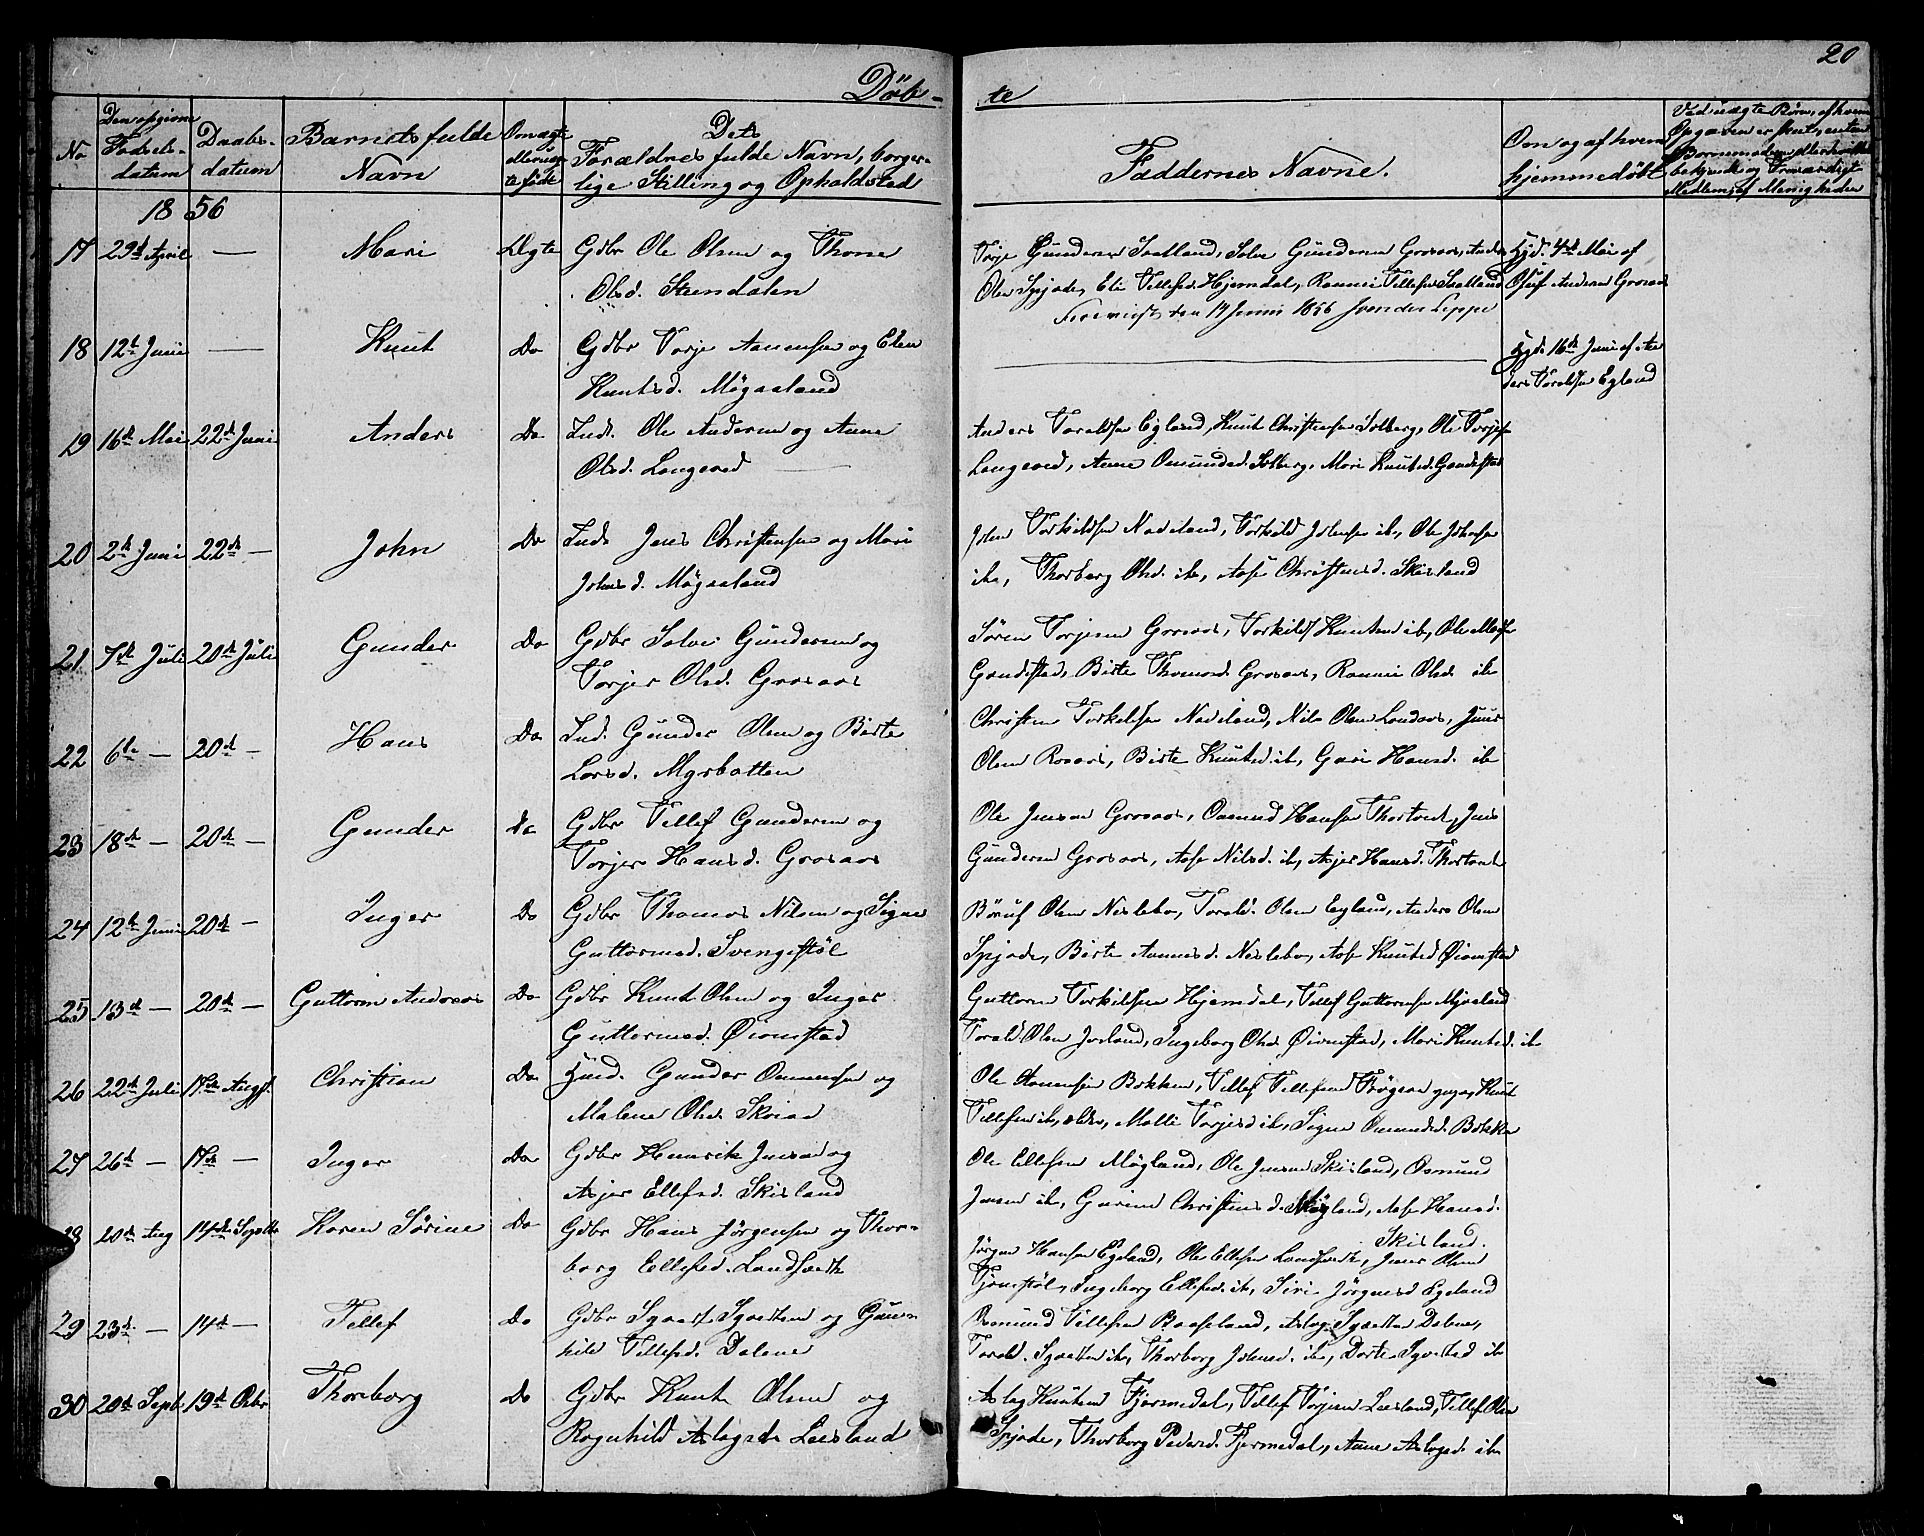 20
Döb- te
No
Den opgivne Fødsels-datum
Daabs-datum
Barnets fulde Navn
Om ægte eller uægte født
Dets Forældres fulde Navn, borger-
lige Stilling og Opholdsted
Faddernes Navne.
Om og af hvem
hjemmedøbt
Ved uægte Børn, af hvem
1856
17 29d April — Mari Ægte Gdbr Ole Olsen og Thone
Olsd. Stendalen
Torje Gundersen Saatland, Salve Gundersen Grosaas, Anders
Olsen Spjode, Eli Tellefsd. Hjemdal, Ranni Tellefsd Saatland
Fremvist den 19 Juni 1856
Hjd. 4de Mai af
Oluf Andersen Grosaas
18 12te Juni — Knut Do Gdbr Torje Aanensen og Elen
Knutsd. Møgaaland
Hjd. 16de Juni af An
ders Toraldsen Egland
19 16de Mai 22de Juni Anders Do Ind. Ole Andersen og Anne
Olsd. Langeved
Anders Toraldsen Egland, Knut Christensen Solberg, Ole Torjes
Langeved, Anne Omundsd. Solberg, Mari Knutsd. Gandestad
20 2de Juni 22de — John Do Ind. Jens Christensen og Mari
Johnsd. Møgaaland
John Torkildsen Naveland, Torkild Johnsen ib, Ole Johnsen
ib, Thorborg Olsd. ib, Aase Christensd. Skisland
21 7de Juli 20de Juli Gunder Do Gdbr Salve Gundersen og
Torjer Olsd. Grosaas
Søren Torjesen Grosaas, Torkild Knutsen ib, Ole
Gandestad, Birte Thomasd. Grosaas, Ranni Olsd. ib
22 6te — 20de — Hans Do Ind. Gunder Olsen og Birte
Larsd. Myrbatten
Christen Torkelsen Naveland, Nils Olsen Landaas, Juus
Olsen Rosaas, Birte Knutsd. ib, Guri Hansd. ib
23 18de — 20de — Gunder Do Gdbr Tellef Gundersen og
Torjer Hansd. Grosaas
Ole Jensen Grosaas, Osmund Hansen Thortvedt, Jens
Gundersen Grosaas, Aase Nilsd. ib, Asjer Hansd. Thortvedt
24 12te Juni 20de — Inger Do Gdbr Thomas Nilsen og Signe
Guttormsd. Svengestøl
Børuf Olsen Neslebo, Torald Olsen Egland, Anders Olsen
Spjode, Birte Aanensd. Neslebo, Aase Knutsd Øiomstad
25 13de — 20de — Guttorm Andreas Do Gdbr Knut Olsen og Inger
Guttormsd. Øiomstad
Guttorm Torkildsen Hjemdal, Tellef Guttormsen Myraland
Torald Olsen Josland, Ingeborg Olsd Øiomstad, Mari Knutsd. ib
26 22de Juli 17de Augst. Christian Do Huusd. Gunder Osmundsen og
Malene Olsd. Skeiaa
Ole Aanensen Bakken, Tellef Tellefsen Frøysaa yngre, Knut
Tellefsen ib, ældre, Malli Torjesd ib, Signe Osmundsd. Bakken
27 26de — 17de — Inger Do Gdbr Henrik Jensen og
Asjer Ellefsd. Skisland
Ole Ellefsen Møgland, Ole Jensen Skisland, Osmund
Jensen ib, Gurine Christensd. Møgland, Aase Hansd.
Skisland.
28 20de Aug 14de Septbr Karen Sørine Do Gdbr Hans Jørgensen og Thor-
borg Ellefsd. Landfaldt
Jørgen Hansen Egeland, Ole Ellefsen, Jens Olsen
Tjomstøl, Ingeborg Ellefsd. ib, Siri Jørgensd Egeland
29 23de — 14de — Tellef Do Gdbr Syvert Syvertsen og Gun-
hild Tellefsd. Dalene
Osmund Tellefsen Baaseland, Aslag Syvertsen Dalene,
Torald Syvertsen ib, Thorborg Johnsd. ib, Dorte Syvertsd ib
30 20de Septbr 19de Octbr Thorborg Do Gdbr Knut Olsen og
Ragnhild Aslagsd. Leesland
Aslag Knutsen Fjermedal, Tellef Torjesen Leesland, Tellef Olsen
Spjode, Thorborg Pedersd. Fjermedal, Anne Aslagsd. ib